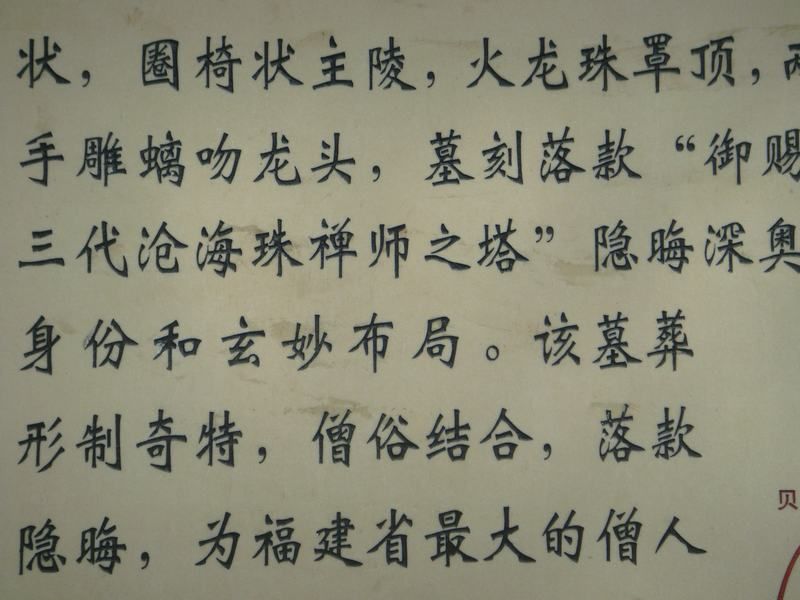 状，圈椅状主陵，火龙珠罩顶，
手雕螭吻龙头，墓刻落款“御赐
三代沧海珠禅师之塔”隐晦深奥
身份和玄妙布局。该墓葬
形制奇特，僧俗结合，落款
隐晦，为福建省最大的僧人
贝